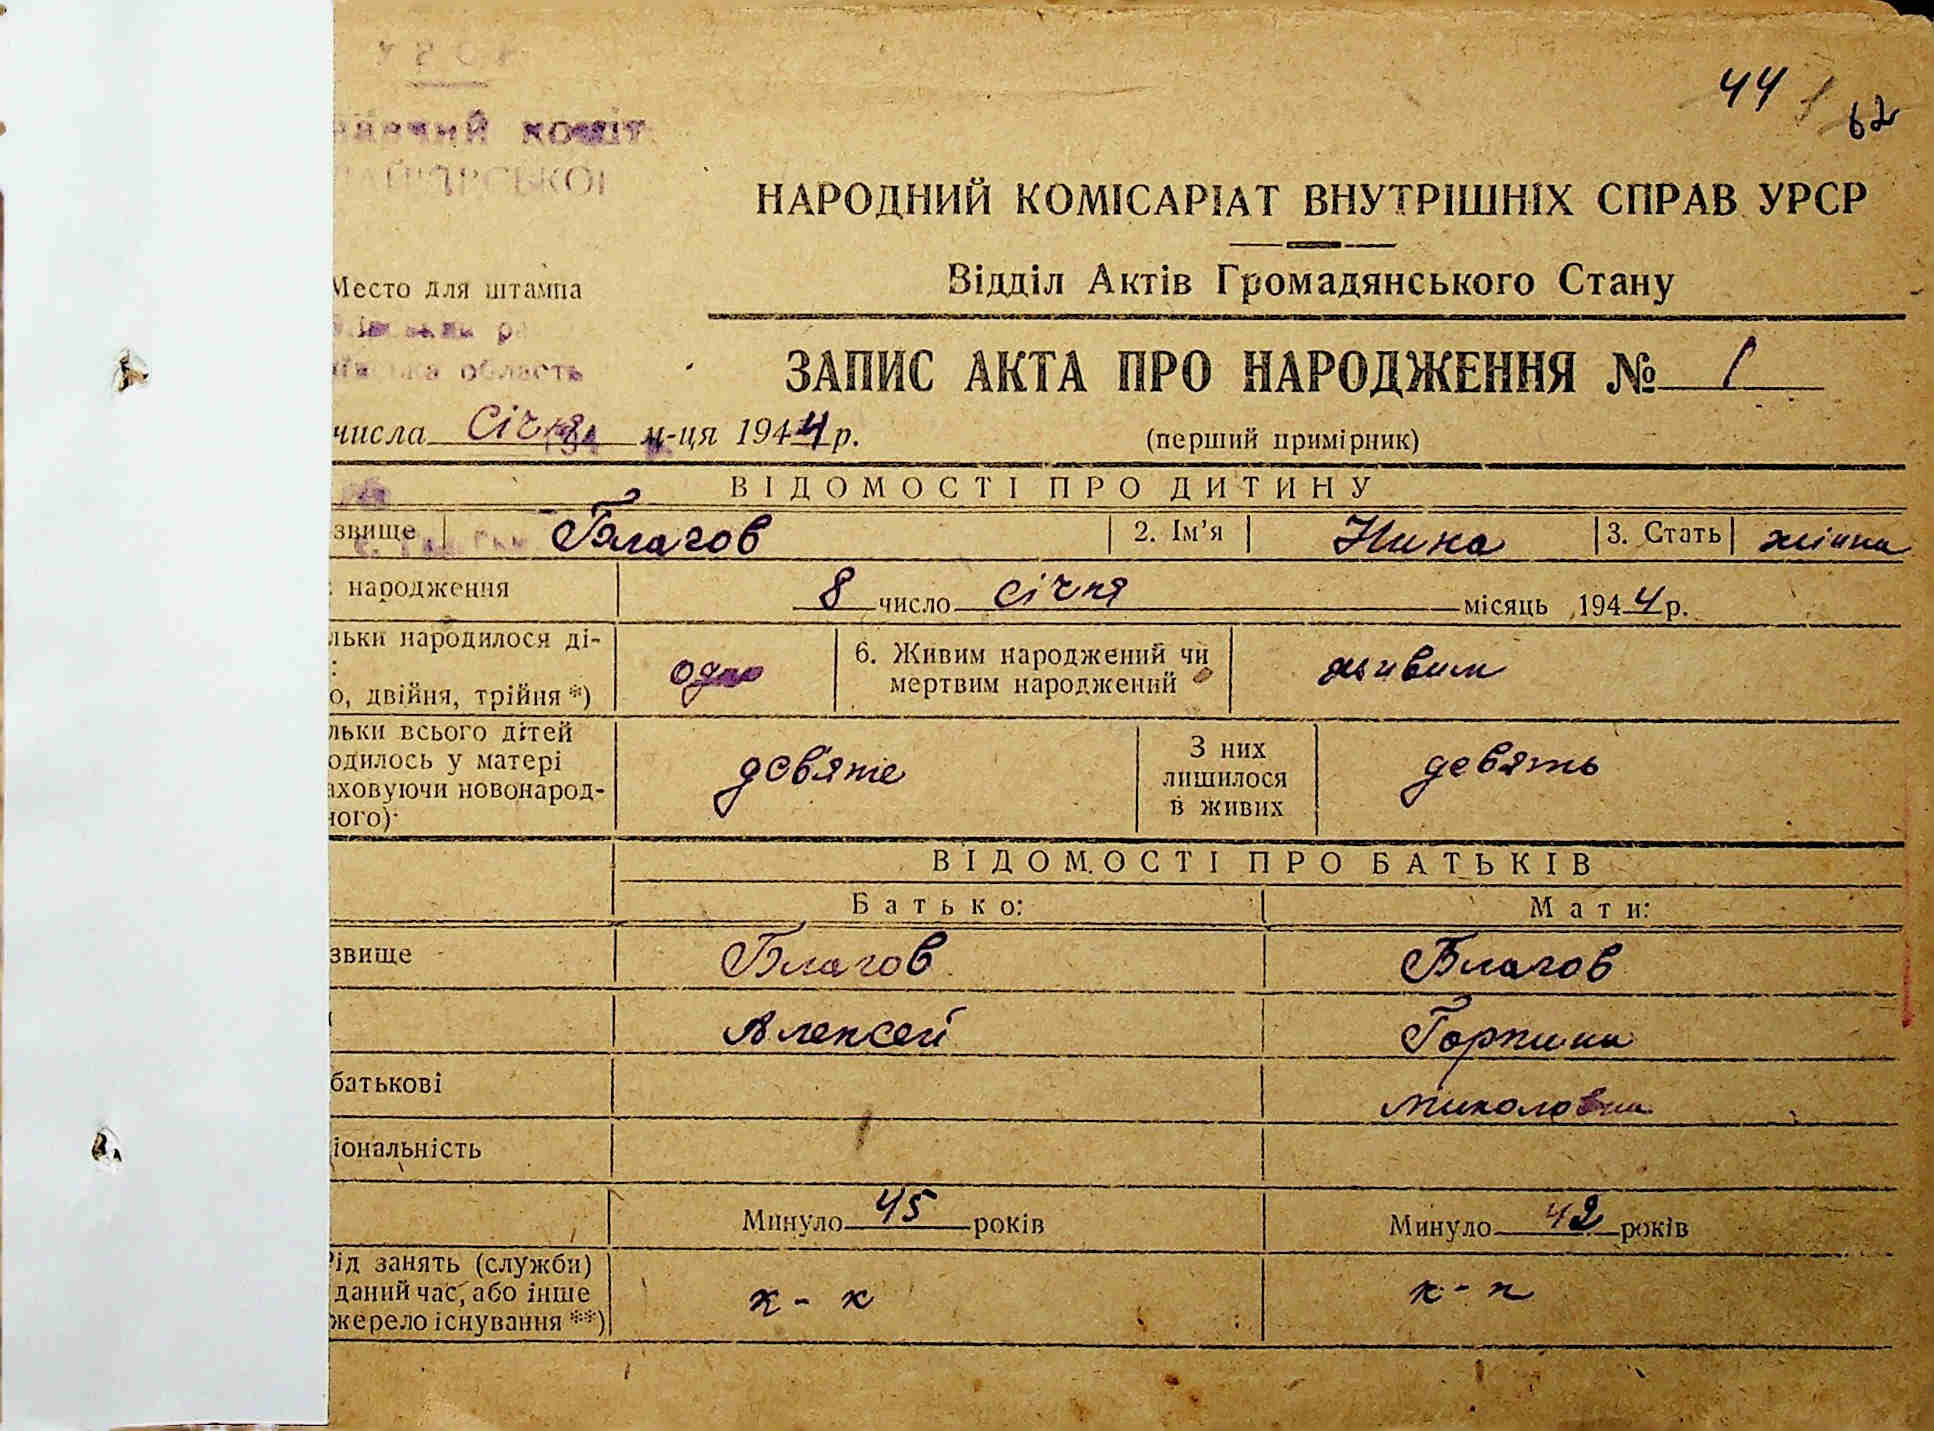 44 62
кошт
НАРОДНИЙ КОМІСАРІАТ ВНУТРІШНІХ СПРАВ УРСР
Место для штампа
Відділ Актів Громадянського Стану
область
ЗАПИС АКТА ПРО НАРОДЖЕННЯ № 1
числа січня м-ця 1944 р. (перший примірник)
ВІДОМОСТІ ПРО ДИТИНУ
звище Благов 2. Ім'я Нина 3. Стать жіноча
народження 8 число січня місяць 1944 р.
льки народилося ді-
о, двійня, трійня *) одно 6. Живим народжений чи мертвим народжений живим
льки всього дітей
одилось у матері
аховуючи новонарод-
ного) девяте З них лишилося в живих девять
ВІДОМОСТІ ПРО БАТЬКІВ
Батько: Мати:
звище Благов Благов
Алексей Горпина
батькові Миколовна
іональність
Минуло 45 років Минуло 42 років
ід занять (служби)
даний час, або інше
жерело існування **) к-к к-к